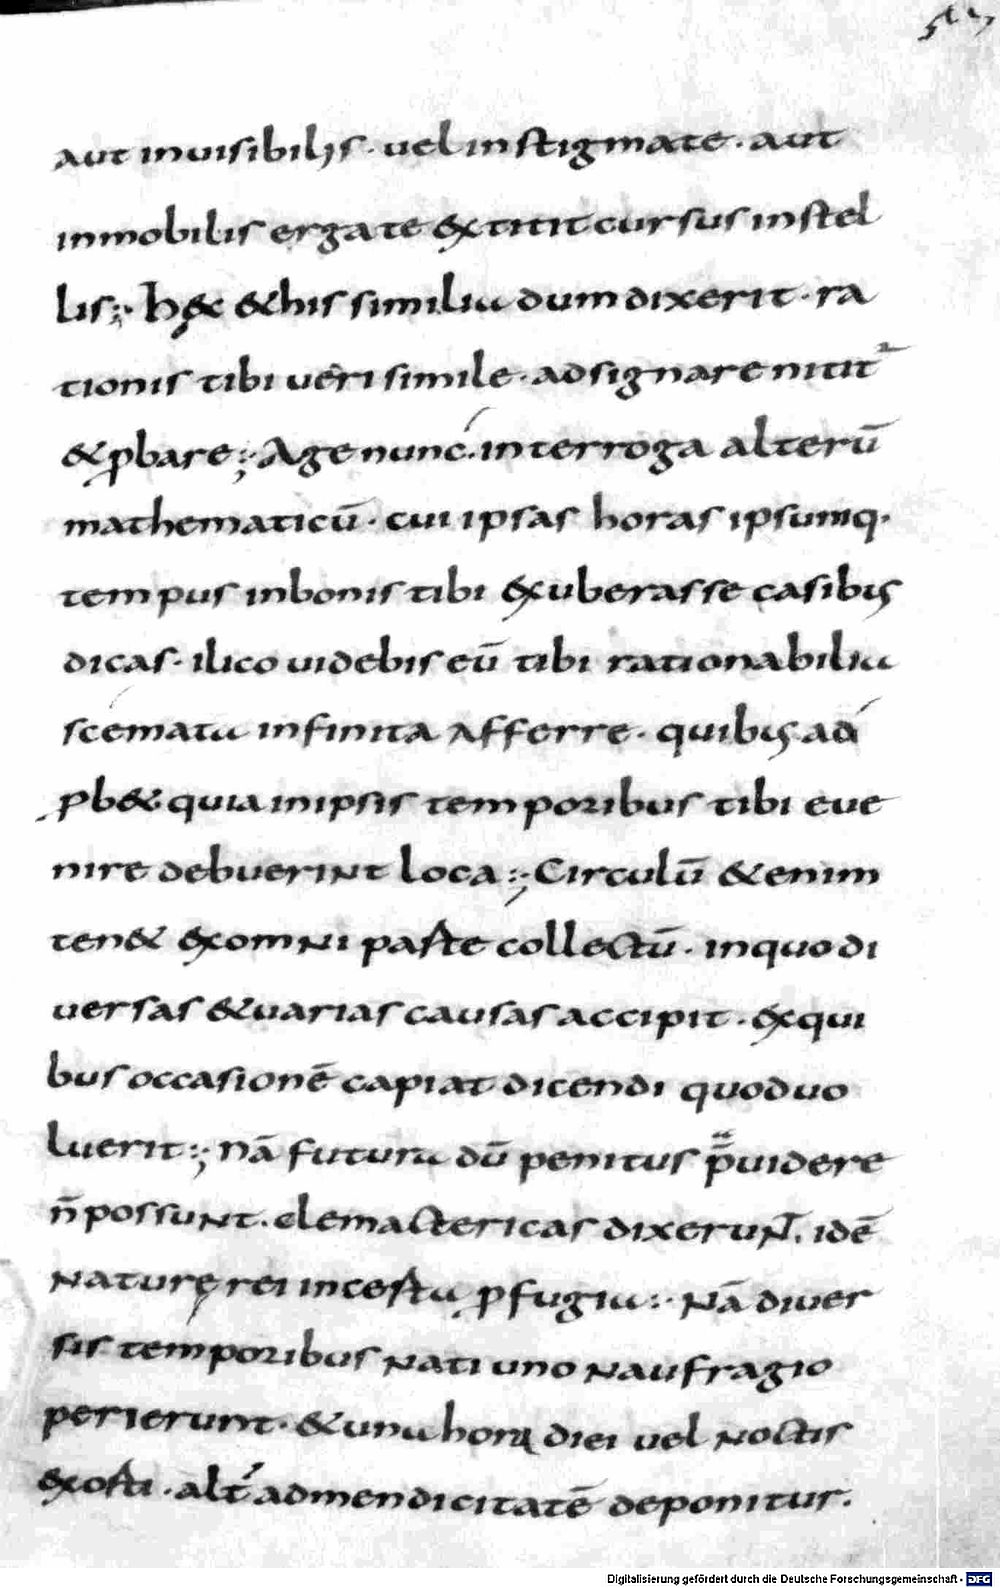 aut inuisibilis · uel in stigmate · aut
inmobilis ergate extitit cursus in stel
lis ; hęc & his similia dum dixerit · ra
tionis tibi ueri simile · adsignare nitit᷑
& ꝓbare ; Age nunc · interroga alterū
mathematicū · cui ipsas horas ipsumq·
tempus in bonis tibi exuberasse casib;
dicas · ilico uidebis eū tibi rationabilia
scemata infinita afferre · quib; ad
ꝓb& quia in ipsis temporibus tibi eue
nire debuerint loca ; Circulū &enim
ten& ex omni parte collectū · in quo di
uersas & uarias causas accipit · ex qui
bus occasionē capiat dicendi quod uo
luerit ; nā futura dū penitus p̄uidere
n̄ possunt · clemactericas dixerunt · idē
naturę rei incerta ꝓfugia : · Nā diuer
sis temporibus nati uno naufragio
perierunt · & una hora diei uel noctis
exorti · alt᷑ ad mendicitatē deponitur ·
Digitalisierung gefördert durch die Deutsche Forschungsgemeinschaft - DFG